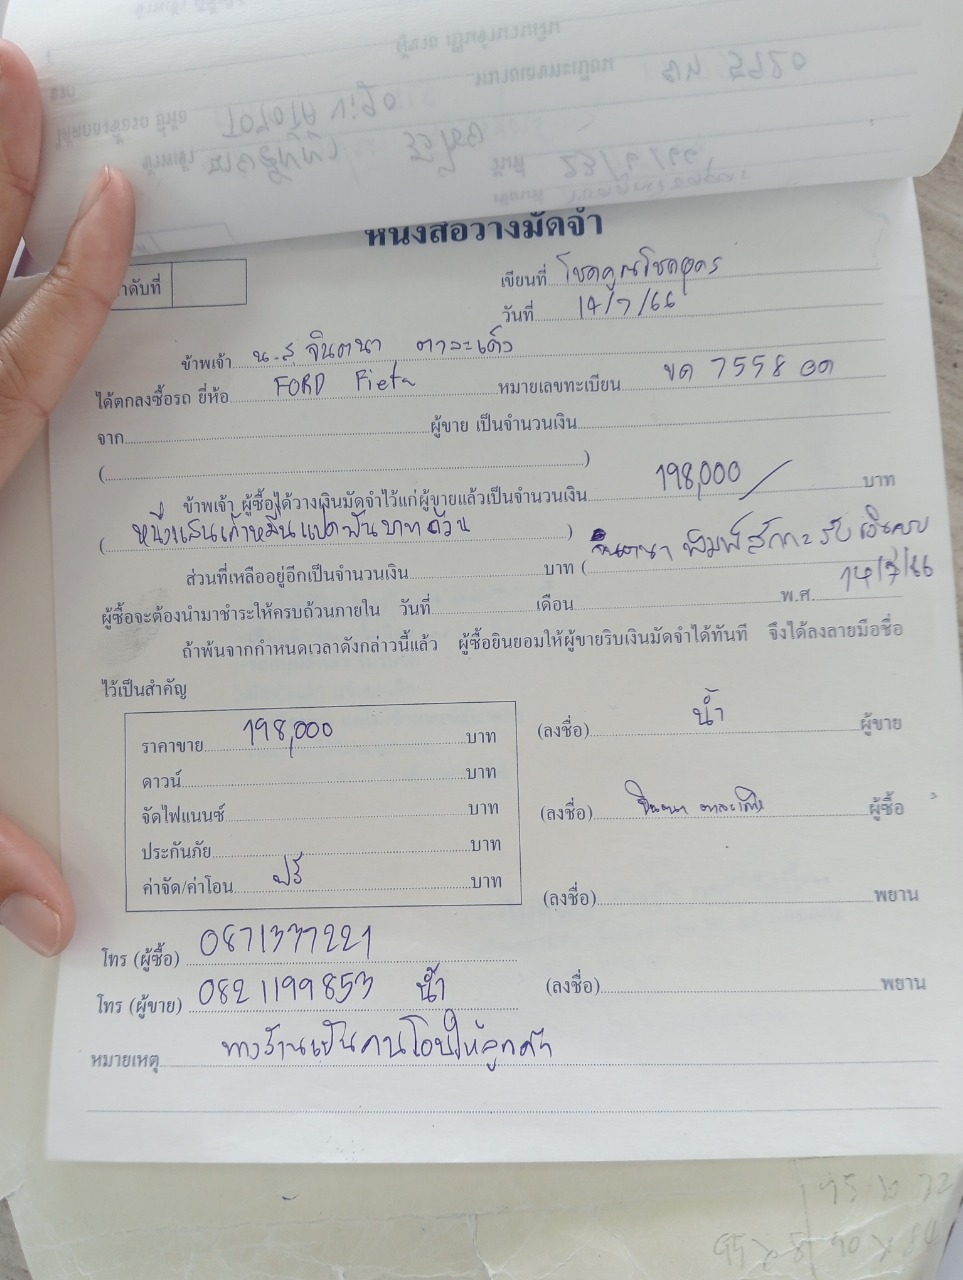 หนังสือวางมัดจำ
ลำดับที่
เขียนที่ โชคคูณโชคอุดร
วันที่ 14/7/66
ข้าพเจ้า น.ส จินตนา ตาละเดิ่ว
ได้ตกลงซื้อรถ ยี่ห้อ FORD Fieta หมายเลขทะเบียน ขด 7558 อด
จาก ผู้ขาย เป็นจำนวนเงิน
( )
ข้าพเจ้า ผู้ซื้อได้วางเงินมัดจำไว้แก่ผู้ขายแล้วเป็นจำนวนเงิน 198,000/ บาท
(หนึ่งแสนเก้าหมื่นแปดพันบาทถ้วน)
ส่วนที่เหลืออยู่อีกเป็นจำนวนเงิน บาท ( จินตนา รับเงินครบ
ผู้ซื้อจะต้องนำมาชำระให้ครบถ้วนภายใน วันที่ เดือน พ.ศ. 14/7/66
ถ้าพ้นจากกำหนดเวลาดังกล่าวนี้แล้ว ผู้ซื้อยินยอมให้ผู้ขายริบเงินมัดจำได้ทันที จึงได้ลงลายมือชื่อ
ไว้เป็นสำคัญ
ราคาขาย 198,000 บาท
ดาวน์ บาท
จัดไฟแนนซ์ บาท
ประกันภัย บาท
ค่าจัด/ค่าโอน ฟรี บาท
(ลงชื่อ) น้ำ ผู้ขาย
(ลงชื่อ) จินตนา ผู้ซื้อ
(ลงชื่อ) พยาน
(ลงชื่อ) พยาน
โทร (ผู้ซื้อ) 0871337221
โทร (ผู้ขาย) 0821199853 น้ำ
หมายเหตุ ทางร้านเป็นคนโอนให้ลูกค้า